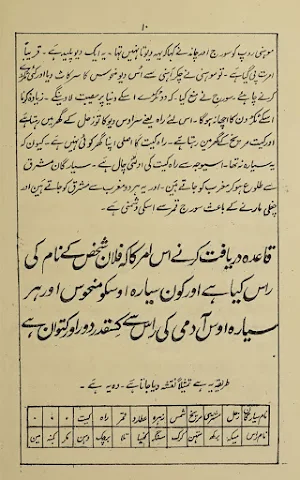 ۱۰
موہنی روپ کو سورج اور چاند نے کہا کہ یہ دیوتا نہیں تہا۔ یہ ایک دیو پلید ہے۔ قریباً
امرت پی گیا ہے۔ تو موہنی نے چکر اپنی سے اس دیو منحوس کا سر کاٹ دیا اور کئی ٹکڑے
کرنے چاہئے۔ سورج نے منع کیا۔ کہ دو ٹکڑے اسکے دنیا پر مصیبت لاوینگے۔ زیادہ کرنا
اسکے ٹکڑوں کا اچھا نہ ہوگا۔ اس لئے راہ یعنے سراوس دیو کا توزحل کے گھر میں رہتا ہے
اور کیت مریخ کے گھر میں رہتا ہے۔ راہ کیت کا اصلی اپنا گھر کوئی نہیں ہے۔ کیوں کہ
یہ سیارہ نہ تھا۔ اسیوجہ سے راہ کیت کی اولٹی چال ہے۔ سیارگان مشرق
سے طلوع ہو کر مغرب کو جاتے ہیں۔ اور یہ ہر دو مغرب سے مشرق کو جاتے ہیں اور
چغلی مارنے کے باعث سورج قمر سے اسکی دشمنی ہے۔
قاعدہ دریافت کرنے اس امر کا کہ فلاں شخص کے نام کی
راس کیا ہے اور کون سیارہ اوسکو منحوس اور ہر
سیارہ اوس آدمی کی راس سے کسقدر دور اور کتواں ہے
طریقہ یہ ہے تمثیلاً نقشہ دیا جاتا ہے۔ وہ یہ ہے۔
نام سیارگان زحل مشتری مریخ شمس زہرہ عطارد قمر راہ کیت ۰ ۰ ۰
نام راس میکہ برکہ متھن کرک سنگہ کنیا تلا برچک دہن مکر کنبہ مین